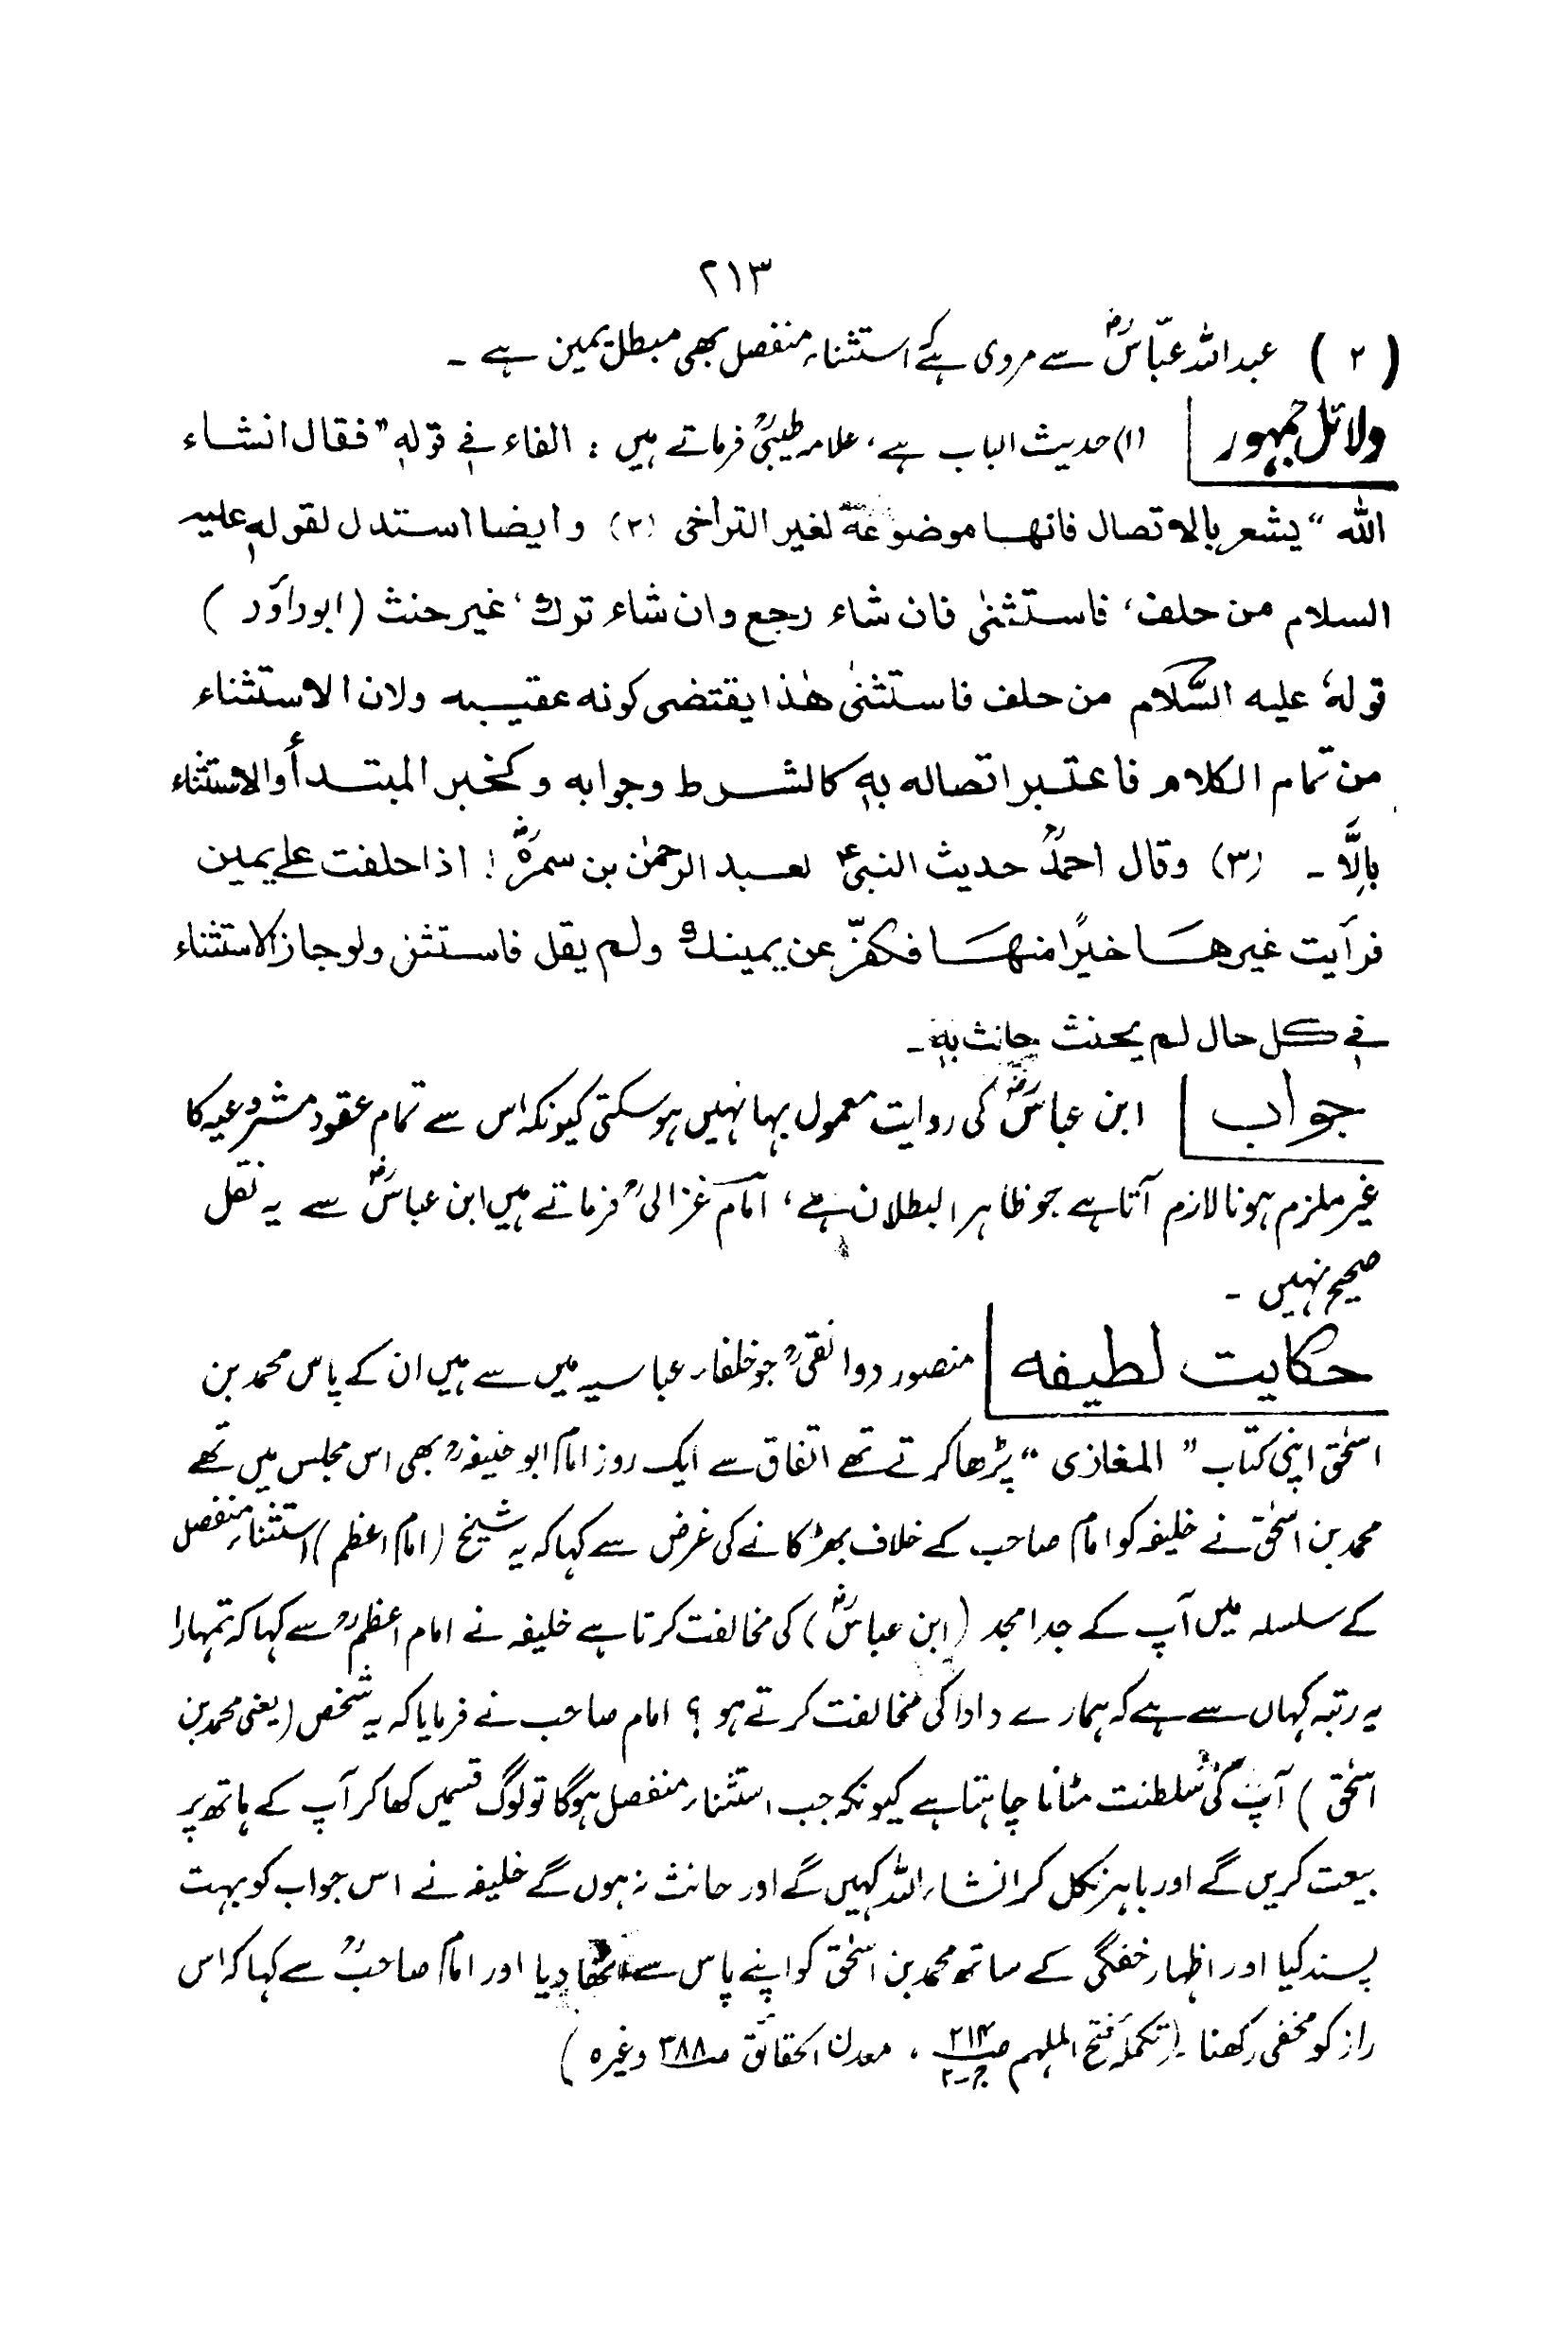 ۲۱۳
( ۲ ) عبداللہ عبّاسؓ سے مروی ہیکے استثناء منفصل بھی مبطل یمین ہے ۔
دلائل جمہور (۱) حدیث الباب ہے، علامہ طیبیؒ فرماتے ہیں : الفاء فی قولہ "فقال انشاء
اللہ" یشعر بالاتصال فانھا موضوعۃ لغیر التراخی (۲) وایضا استدل لقولہ علیہ
السلام من حلف، فاستثنیٰ فان شاء رجع وان شاء ترك، غیر حنث (ابوداؤد )
قولہ علیہ السّلام من حلف فاستثنیٰ ھٰذا یقتضی کونہ عقیبہ ولان الاستثناء
من تمام الکلام فاعتبر اتصالہ بہ کالشرط وجوابہ وکخبر المبتدأ والاستثناء
بالَّا ۔ (۳) وقال احمدؒ حدیث النبیؐ لعبد الرحمٰن بن سمرۃؓ ! اذا حلفت علی یمین
فرأیت غیرھا خیرًا منھا فکفّر عن یمینك ولم یقل فاستثنی ولو جاز الاستثناء
فی کل حال لم یحنث حانث بہ ۔
جواب ابن عباسؓ کی روایت معمول بہا نہیں ہوسکتی کیونکہ اس سے تمام عقود مشروعیہ کا
غیر ملزم ہونا لازم آتا ہے جو ظاہر البطلان ہے، امام غزالیؒ فرماتے ہیں ابن عباسؓ سے یہ نقل
صحیح نہیں ۔
حکایت لطیفہ منصور دوانقیؒ جو خلفاء عباسیہ میں سے ہیں ان کے پاس محمد بن
اسحٰق اپنی کتاب " المغازی " پڑھا کرتے تھے اتفاق سے ایک روز امام ابو حنیفہؒ بھی اس مجلس میں تھے
محمد بن اسحٰق نے خلیفہ کو امام صاحب کے خلاف بھڑکانے کی غرض سے کہا کہ یہ شیخ (امام اعظم) استثناء منفصل
کے سلسلہ میں آپ کے جد امجد (ابن عباسؓ) کی مخالفت کرتا ہے خلیفہ نے امام اعظمؒ سے کہا کہ تمہارا
یہ رتبہ کہاں سے ہے کہ ہمارے دادا کی مخالفت کرتے ہو ؟ امام صاحب نے فرمایا کہ یہ شخص (یعنی محمد بن
اسحٰق ) آپ کی سلطنت مٹانا چاہتا ہے کیونکہ جب استثناء منفصل ہوگا تو لوگ قسمیں کھا کر آپ کے ہاتھ پر
بیعت کریں گے اور باہر نکل کر انشاء اللہ کہیں گے اور حانث نہ ہوں گے خلیفہ نے اس جواب کو بہت
پسند کیا اور اظہار خفگی کے ساتھ محمد بن اسحٰق کو اپنے پاس سے اٹھا دیا اور امام صاحبؒ سے کہا کہ اس
راز کو مخفی رکھنا ۔ (تکملہ فتح الملہم ص ۲۱۴ ج ۲ ، معدن الحقائق ص ۳۸۸ وغیرہ )